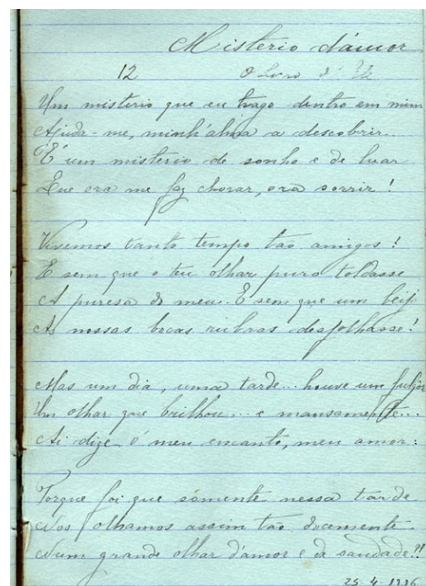 Misterio d'ámor
12 O Livro d'
Um misterio que eu trago dentro em mim
Ajuda-me, minh'alma a descobrir...
É um misterio de sonho e de luar
Que ora me faz chorar, ora sorrir!
Vivemos tanto tempo tão amigos!
E sem que o teu olhar puro toldasse
A puresa do meu. E sem que um beijo
As nossas bocas rubras desfolhasse!
Mas um dia, uma tarde... houve um fulgor
Um olhar que brilhou... e mansamente...
Ai dize ó meu encanto, meu amor:
Porque foi que sómente nessa tarde
Nos olhamos assim tão docemente
Num grande olhar d'amor e de saudade!!
25-4-1916